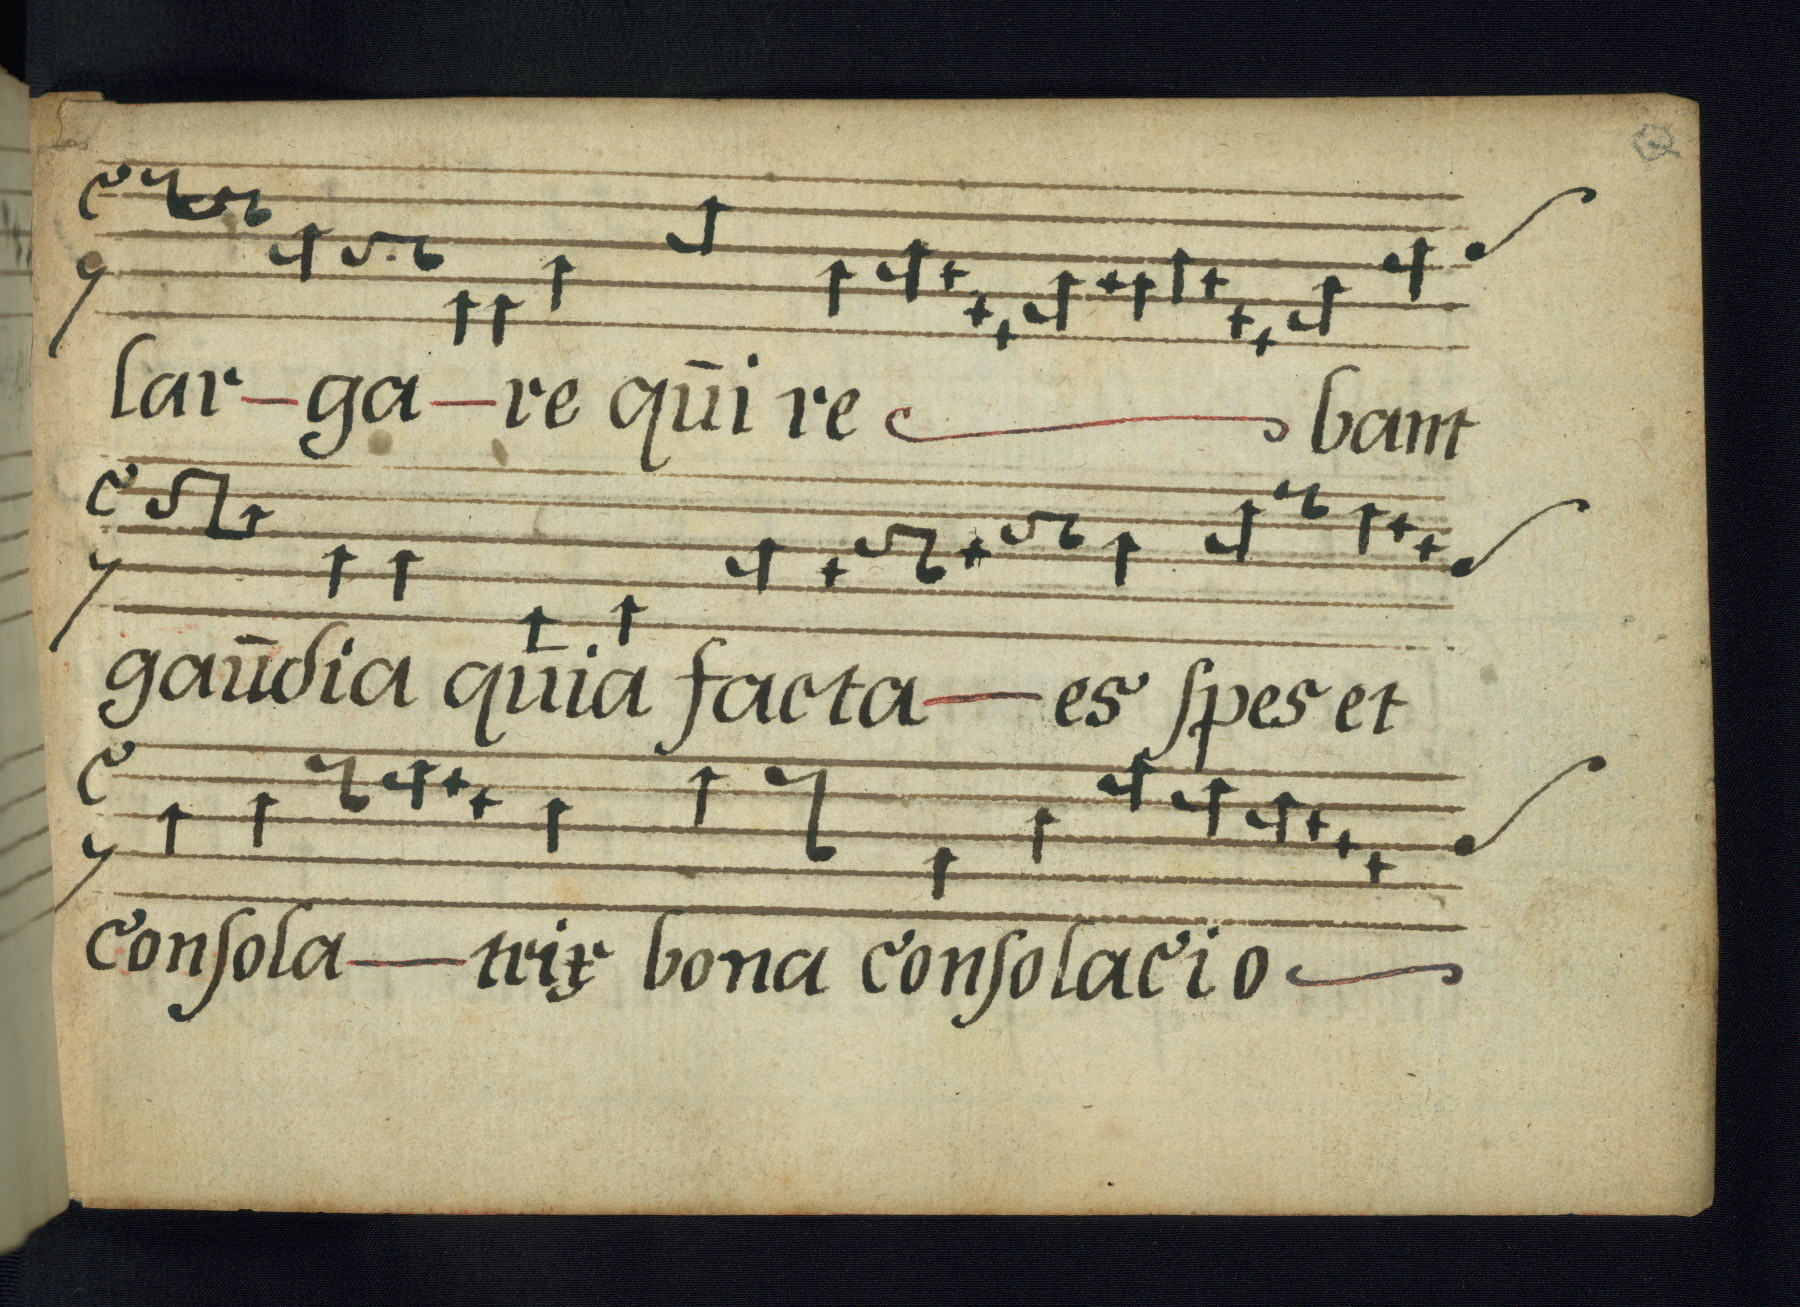 lar-ga-re qūi re bant
gaūdia qūia facta-es ſpes et
conſola-trix bona conſolacio